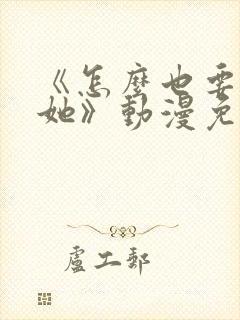 《怎麼也要
她》動漫免
盧工郵